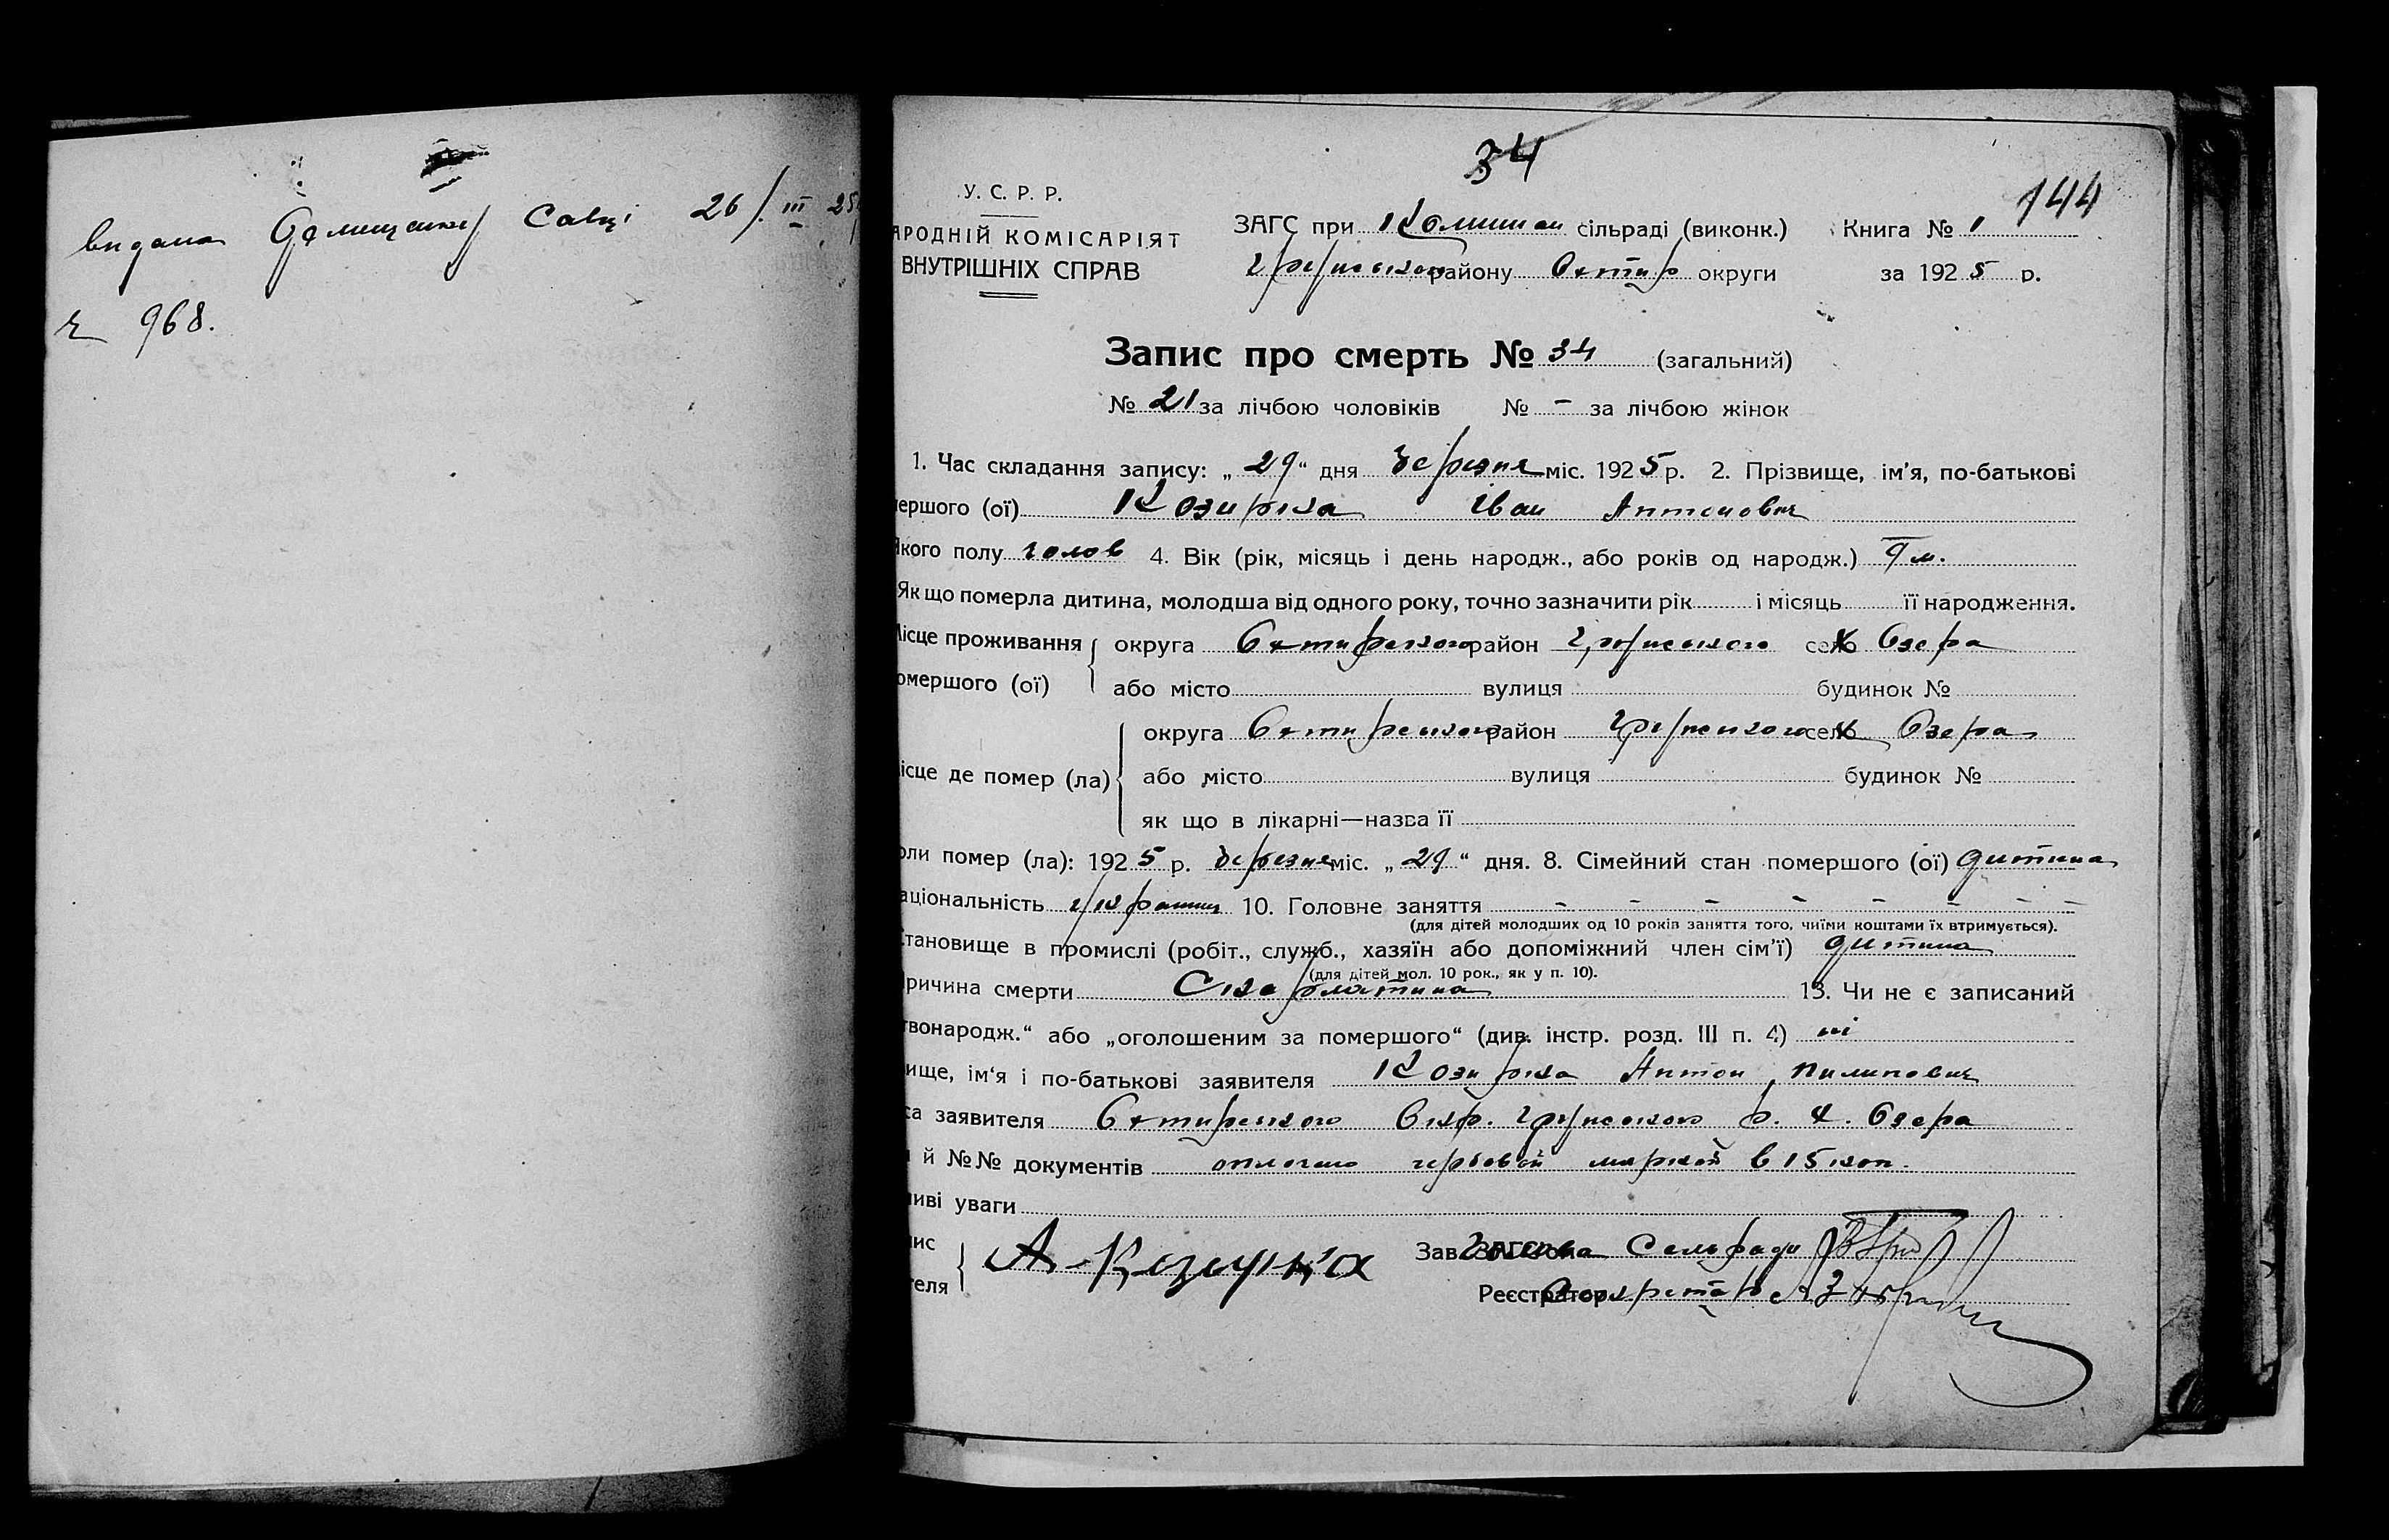 видана Савці 26/III 25
968.
34
144
У. С. Р. Р.
АРОДНІЙ КОМІСАРІЯТ
ВНУТРІШНІХ СПРАВ
ЗАГС при сільраді (виконк.) Книга № 1
району Охтир округи за 1925 р.
Запис про смерть № 34 (загальний)
№ 21 за лічбою чоловіків № - за лічбою жінок
1. Час складання запису: „29“ дня березня міс. 1925 р. 2. Прізвище, ім'я, по-батькові
мершого (ої) Козирка Іван Антонович
Якого полу чолов 4. Вік (рік, місяць і день народж., або років од народж.) 9 м.
Як що померла дитина, молодша від одного року, точно зазначити рік і місяць її народження.
Місце проживання округа Охтирського район Грунського село х Озера
омершого (ої) або місто вулиця будинок №
округа Охтирського район Грунського село х Озера
ісце де помер (ла) або місто вулиця будинок №
як що в лікарні—назва її
оли помер (ла): 1925 р. березня міс. „29“ дня. 8. Сімейний стан помершого (ої) дитина
аціональність українц 10. Головне заняття - - - - - - - -
(для дітей молодших од 10 років заняття того, чиїми коштами їх втримується).
Становище в промислі (робіт., служб., хазяїн або допоміжний член сім'ї) дитина
(для дітей мол. 10 рок., як у п. 10).
ричина смерти Скарлатина 13. Чи не є записаний
твонародж.“ або „оголошеним за помершого“ (див. інстр. розд. III п. 4) ні
ище, ім'я і по-батькові заявителя Козирка Антон Пилипович
са заявителя Охтирського Окр. Грунського р. х. Озера
й №№ документів оплочено гербовой маркой в 15 коп.
иві уваги
ис А. Козирка Зав. ЗАГС'ом Голова Сельради
теля Реєстратор Секретарь